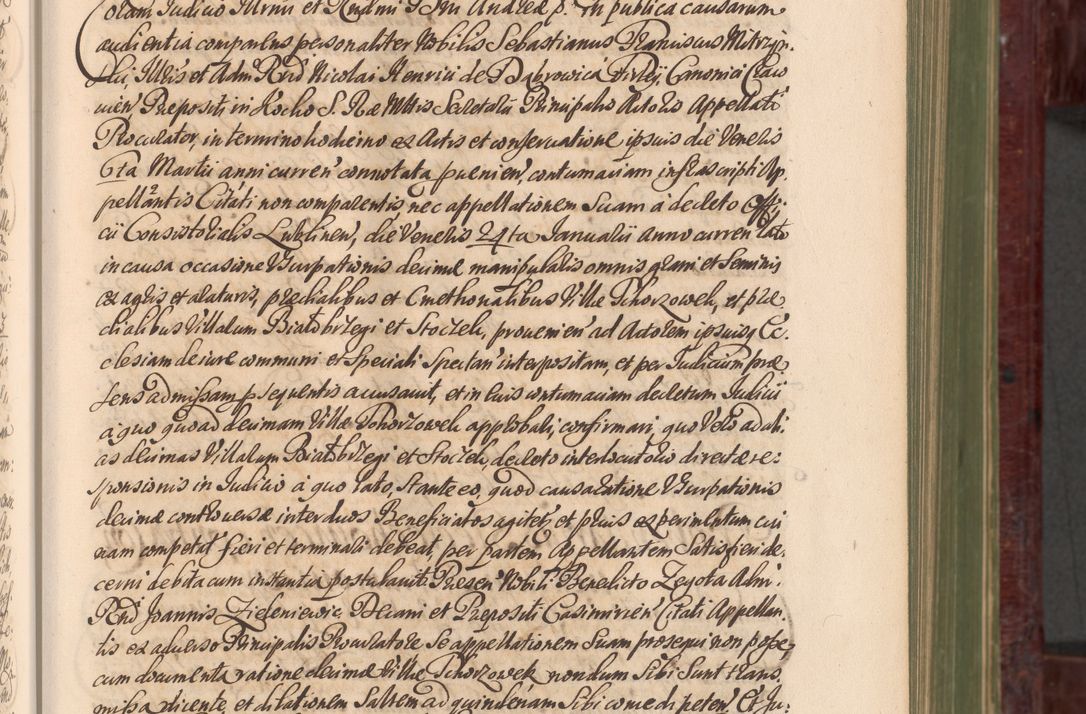 Coram Judicio Illrmi et Rndmi D. in publica causarum
audientia comparens personaliter Nobilis Sebastianus Franciscus Mitrzyn,
ski, Illris et Admi Rndi Nicolai Henrici de Dąbrowica Firley Canonici Craco
vien Præpositi in Kocko S. Ræ Mttis Secretarii Principalis Actoris Appellati
Procurator, in termino hodierno ex Actis et conservatione ipsius die Veneris
6ta Martii anni curren connotata pvenien, contumaciam infrascripti Ap,
pellantis Citati non comparentis nec appellationem suam a decreto Offi,
cii Consistorialis Lublinen, die Veneris 24ta Januarii anno curren lato
in causa occasione Usurpationis decimæ manipularis omnis grani et seminis
ex agris et araturis, prædialibus et Cmethonalibus Villæ Tchorzowek, et præ
dialibus Villarum Białobrzegi et Stoczek, provenien ad Actorem ipsiusq Ec,
clesiam de iure communi et speciali spectan interpositam, et per Judicium præ
sens admissam psequentis accusavit, et in eius contumaciam decretum Judicii
a quo quoad decimam Villæ Tchorzowek approbari, confirmari, quo Vero ad ali,
as decimas Villarum Białobrzegi et Stoczek, decreto interlocutorio directæ re:
sponsionis in Judicio a quo lato, stante eo, quod causa ratione Usurpationis
decimæ controversæ inter duos Beneficiatos agitet, et prius experimentum cui
nam competat fieri et terminari debeat, per partem Appellantem satisfieri de,
cerni debita cum instantia postulavit Præsen Nobili Benedicto Zegota Admi
Rndi Joannis Zieleniewic Decani et Præpositi Casimirien Citati Appellan,
tis ex adverso Principalis Procuratore se appellationem suam prosequi non posse
cum documenta ratione decimæ Villæ Tchorzowek nondum sibi sunt trans,
missa dicente, et dilationem saltem ad quindenam sibi concedi peten Et Ju: